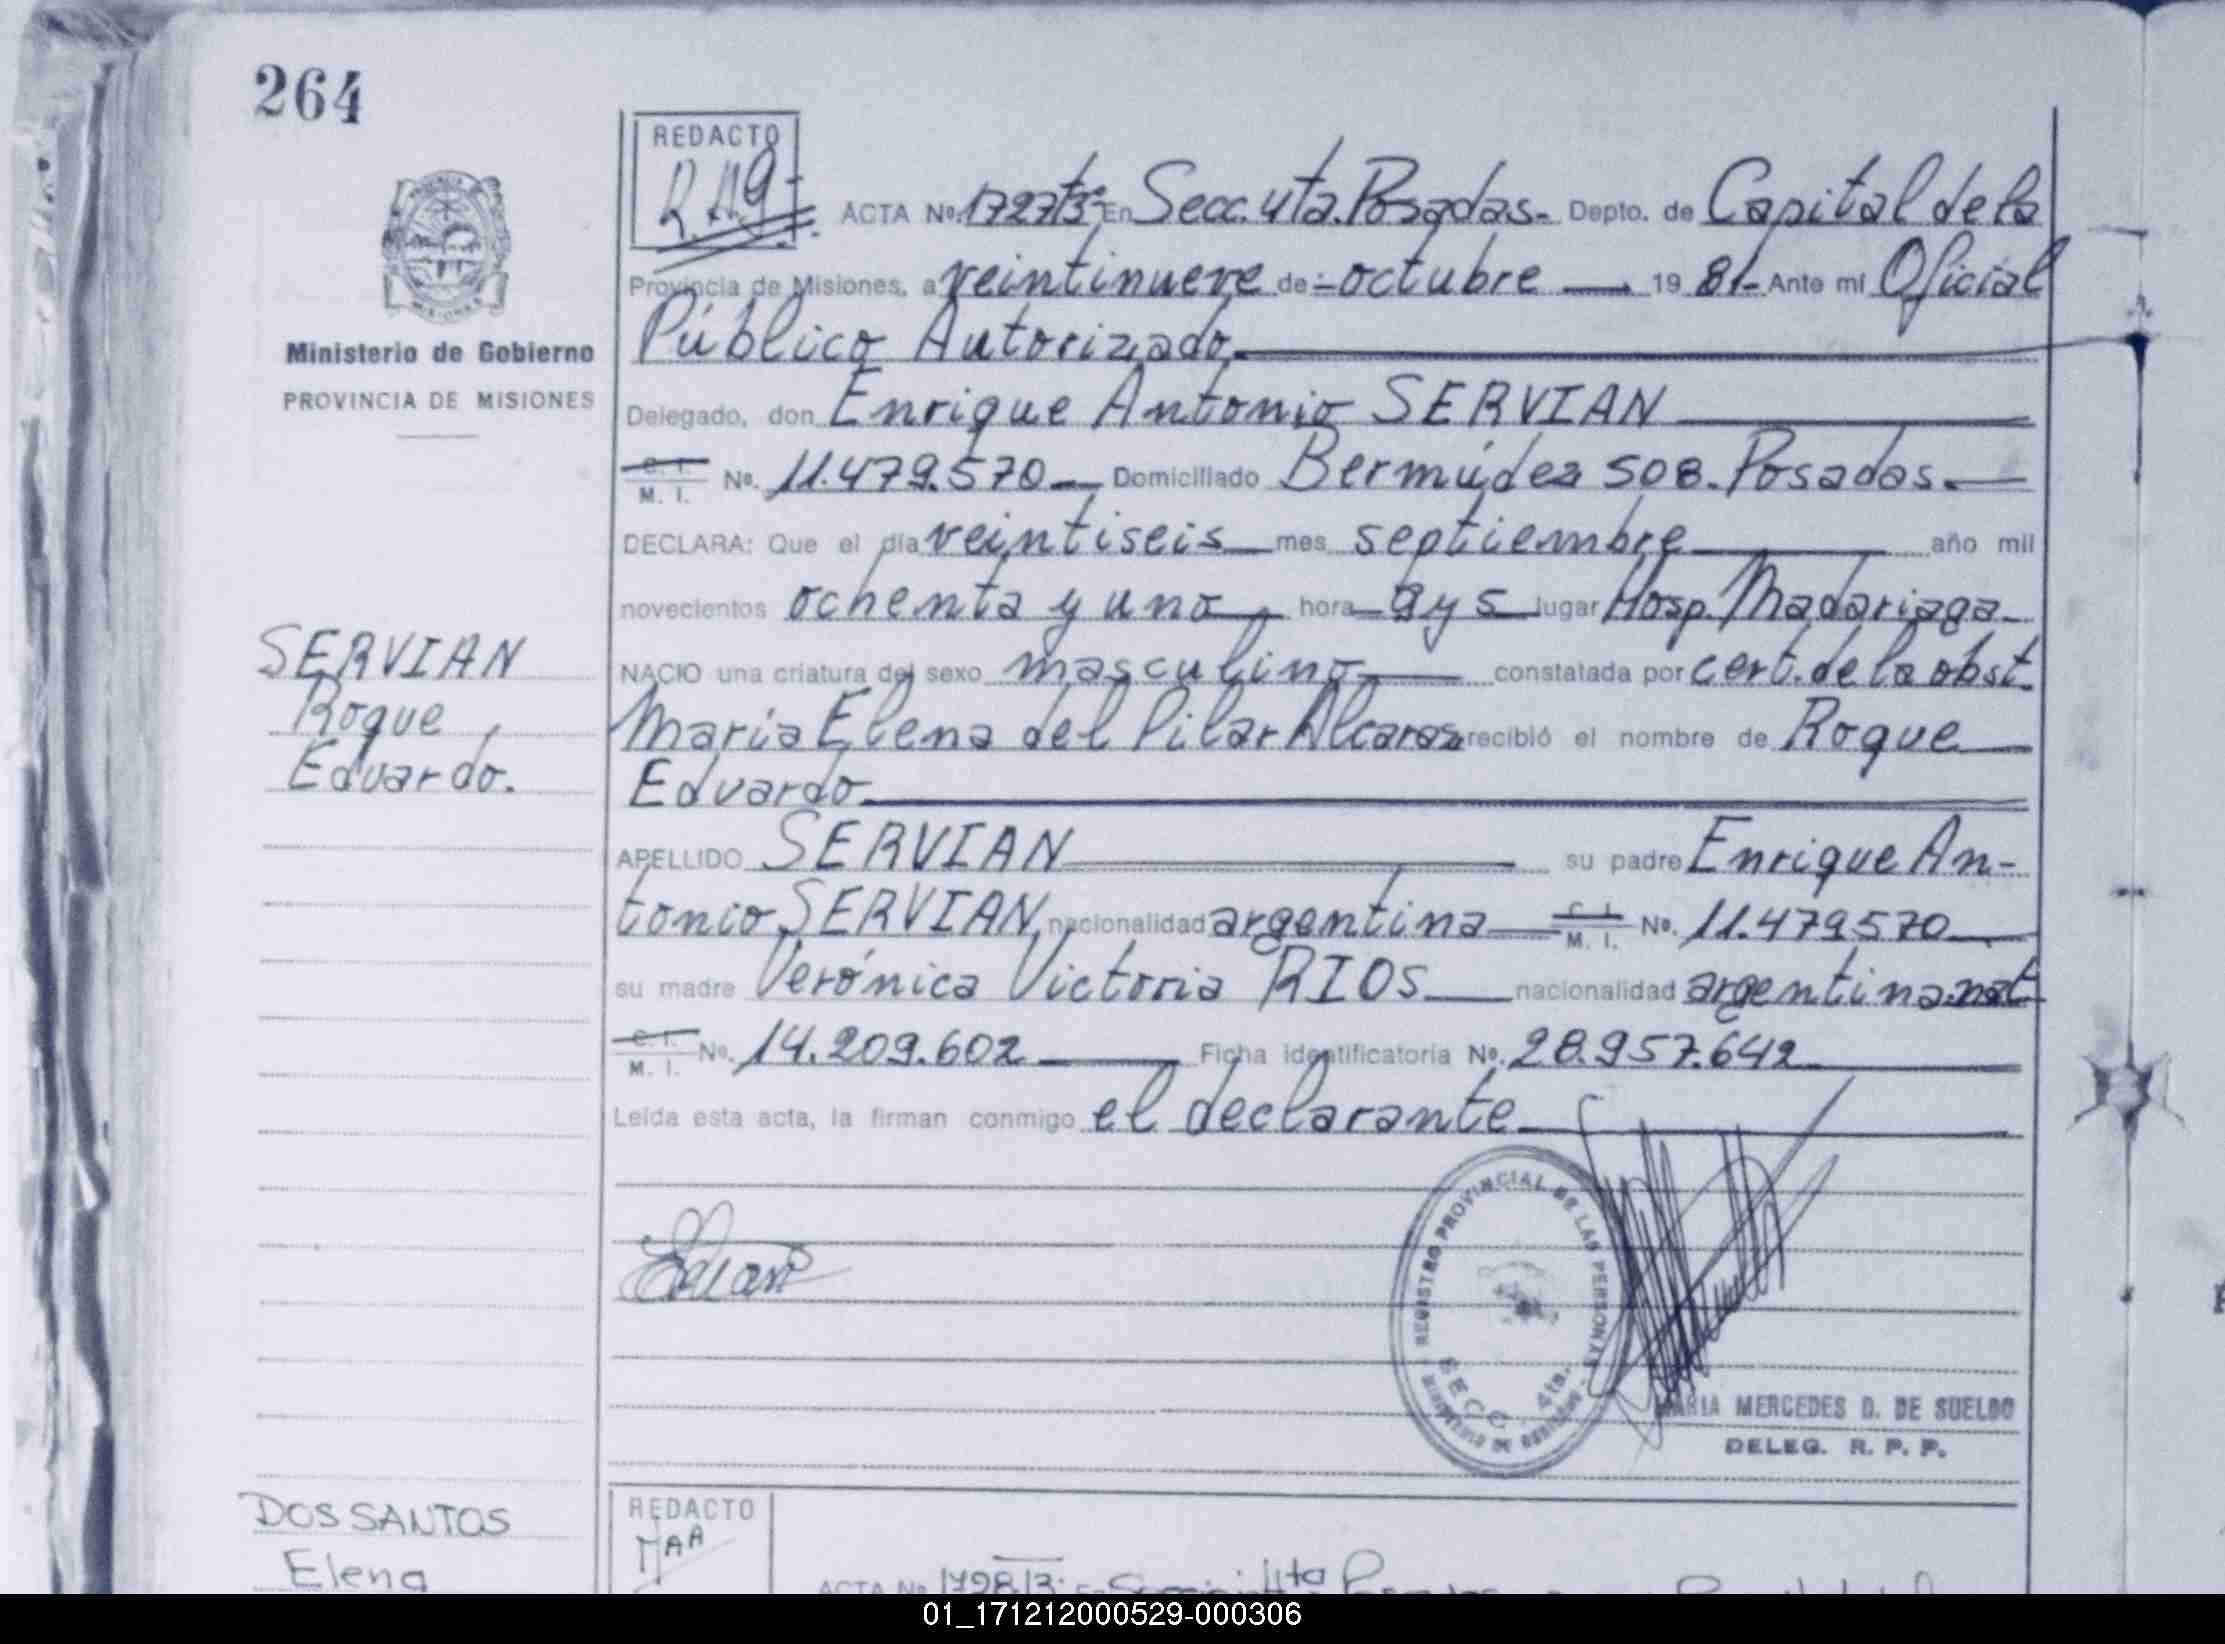 264
REDACTO
ACTA Nº 1727 tº 3º En Secc. 4ta. Posadas.- Depto. de Capital de la
Provincia de Misiones, a veintinueve de octubre 19 81.- Ante mí Oficial
Público Autorizado
Ministerio de Gobierno
PROVINCIA DE MISIONES
Delegado, don Enrique Antonio SERVIAN
C. I. M. I. Nº. 11.479.570 Domiciliado Bermúdez 508. Posadas.
DECLARA: Que el día veintiseis mes septiembre año mil
novecientos ochenta y uno, hora 9 y 5 lugar Hosp. Madariaga
NACIO una criatura del sexo masculino constatada por cert. de la obst.
María Elena del Pilar Alcaraz recibió el nombre de Roque
Eduardo
SERVIAN
Roque
Eduardo.
APELLIDO SERVIAN su padre Enrique An-
tonio SERVIAN, nacionalidad argentina C. I. M. I. Nº. 11.479570
su madre Verónica Victoria RIOS nacionalidad argentina.nat
C. I. M. I. Nº. 14.209.602 Ficha identificatoria Nº. 28.957.642
Leída esta acta, la firman conmigo el declarante
REGISTRO PROVINCIAL DE LAS PERSONAS
SECC. 4ta.
MINISTERIO DE GOBIERNO
MARIA MERCEDES D. DE SUELDO
DELEG. R. P. P.
DOS SANTOS
Elena
REDACTO
MAA
ACTA Nº
01_171212000529-000306